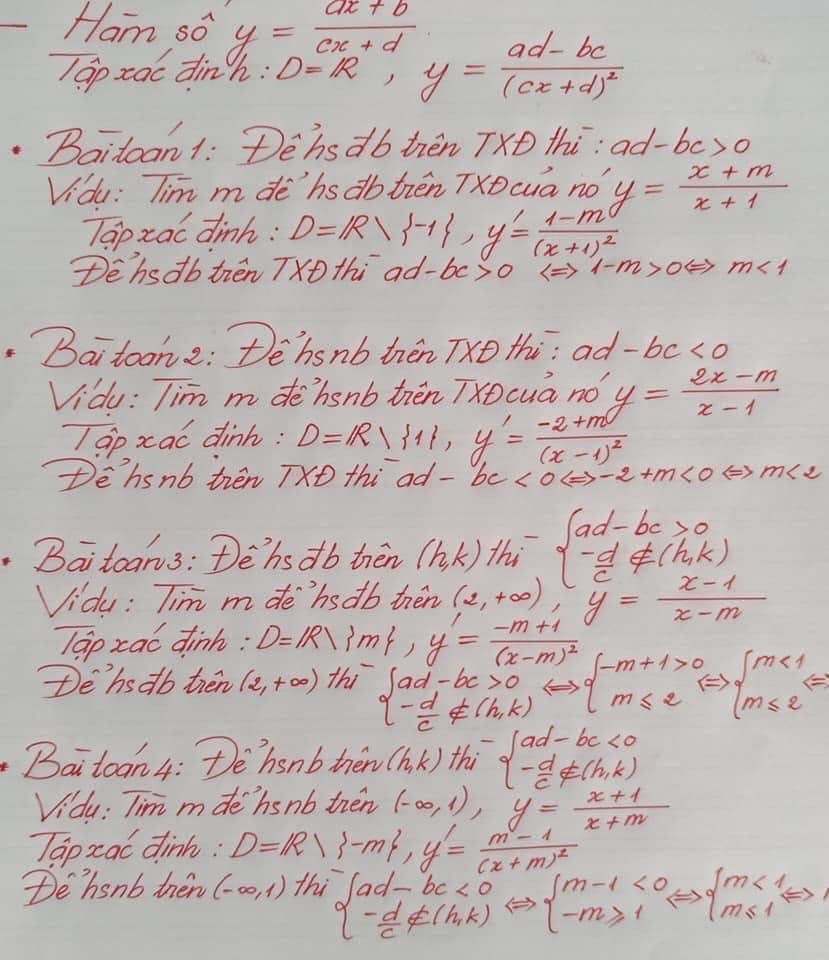 - Hàm số y = ax + b / cx + d
Tập xác định : D = ℝ , y = ad - bc / (cx + d)²
• Bài toán 1: Để hs đb trên TXĐ thì : ad - bc > 0
Ví dụ: Tìm m để hs đb trên TXĐ của nó y = x + m / x + 1
Tập xác định : D = ℝ \ {-1} , y' = 1 - m / (x + 1)²
Để hs đb trên TXĐ thì ad - bc > 0 ⇔ 1 - m > 0 ⇔ m < 1
• Bài toán 2: Để hs nb trên TXĐ thì : ad - bc < 0
Ví dụ: Tìm m để hs nb trên TXĐ của nó y = 2x - m / x - 1
Tập xác định : D = ℝ \ {1}, y' = -2 + m / (x - 1)²
Để hs nb trên TXĐ thì ad - bc < 0 ⇔ -2 + m < 0 ⇔ m < 2
• Bài toán 3: Để hs đb trên (h,k) thì { ad - bc > 0 ; -d/c ∉ (h,k)
Ví dụ : Tìm m để hs đb trên (2, +∞) , y = x - 1 / x - m
Tập xác định : D = ℝ \ {m} , y' = -m + 1 / (x - m)²
Để hs đb trên (2, +∞) thì { ad - bc > 0 ; -d/c ∉ (h,k) ⇔ { -m + 1 > 0 ; m ⩽ 2 ⇔ { m < 1 ; m ⩽ 2 ⇔
• Bài toán 4: Để hs nb trên (h,k) thì { ad - bc < 0 ; -d/c ∉ (h,k)
Ví dụ: Tìm m để hs nb trên (-∞, 1) , y = x + 1 / x + m
Tập xác định : D = ℝ \ {-m} , y' = m - 1 / (x + m)²
Để hs nb trên (-∞, 1) thì { ad - bc < 0 ; -d/c ∉ (h,k) ⇔ { m - 1 < 0 ; -m ⩾ 1 ⇔ { m < 1 ; m ⩽ 1 ⇔